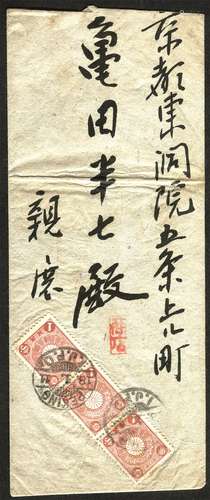 京都東洞院五条上ル町
亀田半七殿
親展
PEKING
I.J.P.O
1
1